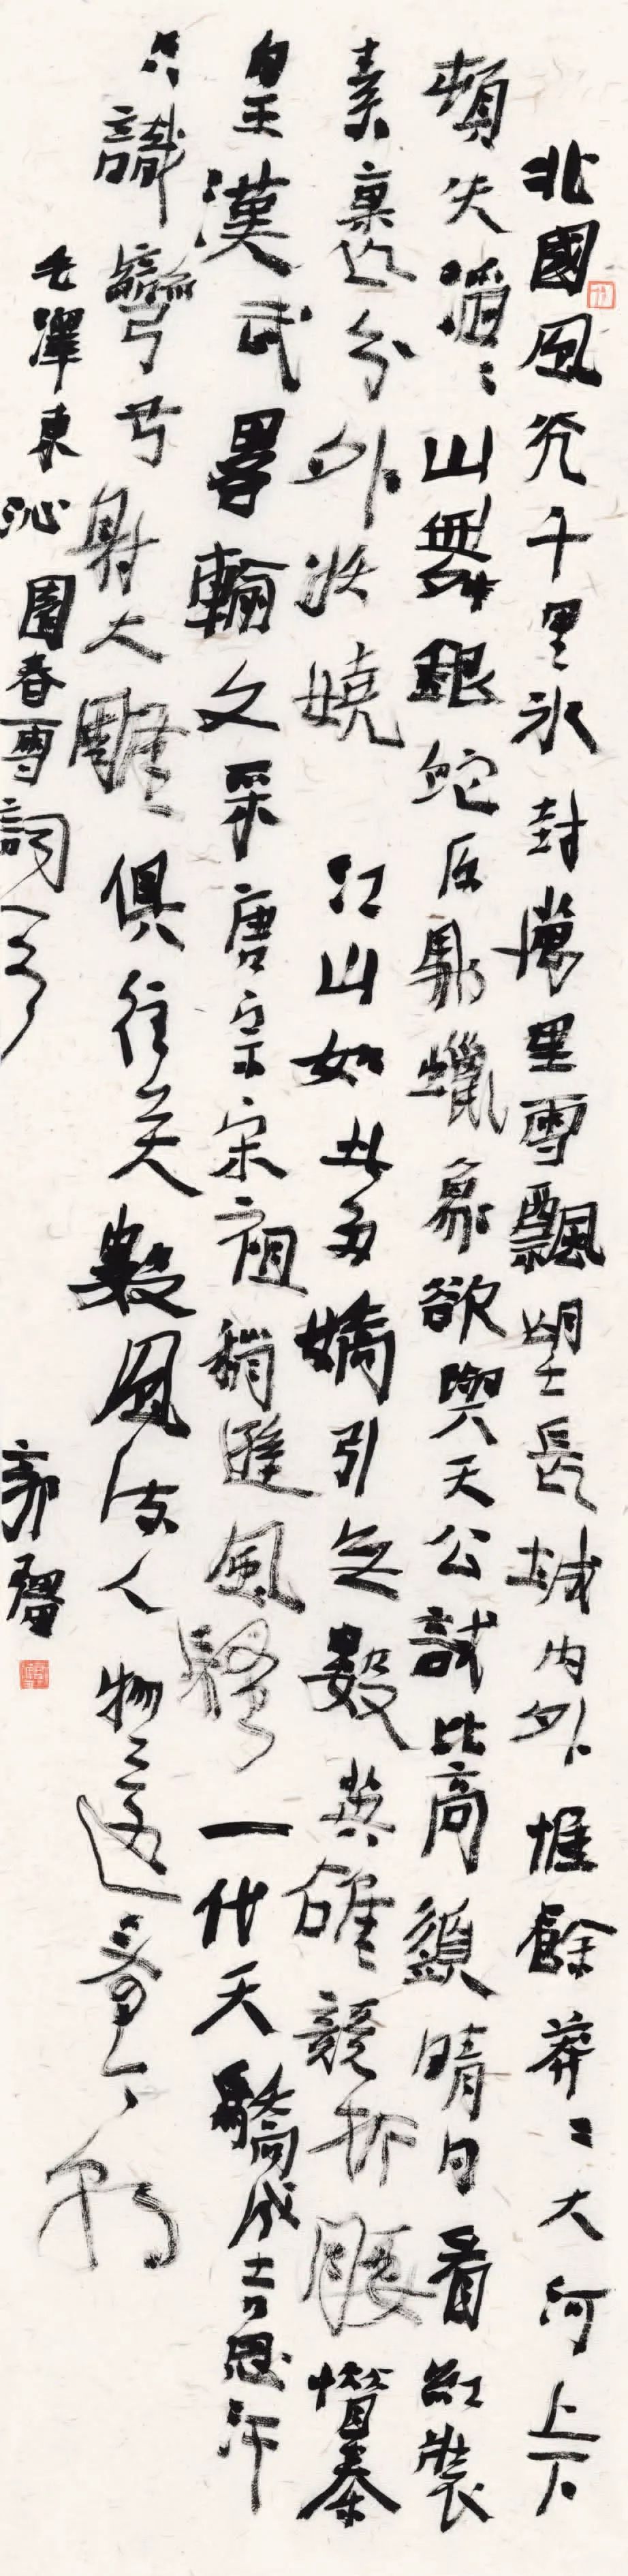 北國風光千里冰封萬里雪飄望長城內外惟餘莽〻大河上下
頓失滔〻山舞銀蛇原馳蠟象欲與天公試比高須晴日看紅裝
素裹分外妖嬈 江山如此多嬌引无數英雄競折腰惜秦
皇漢武畧輸文采唐宗宋祖稍遜風騷一代天驕成吉思汗
只識彎弓射大雕俱往矣數風流人物還看今朝
毛澤東沁園春雪詞一首 郭